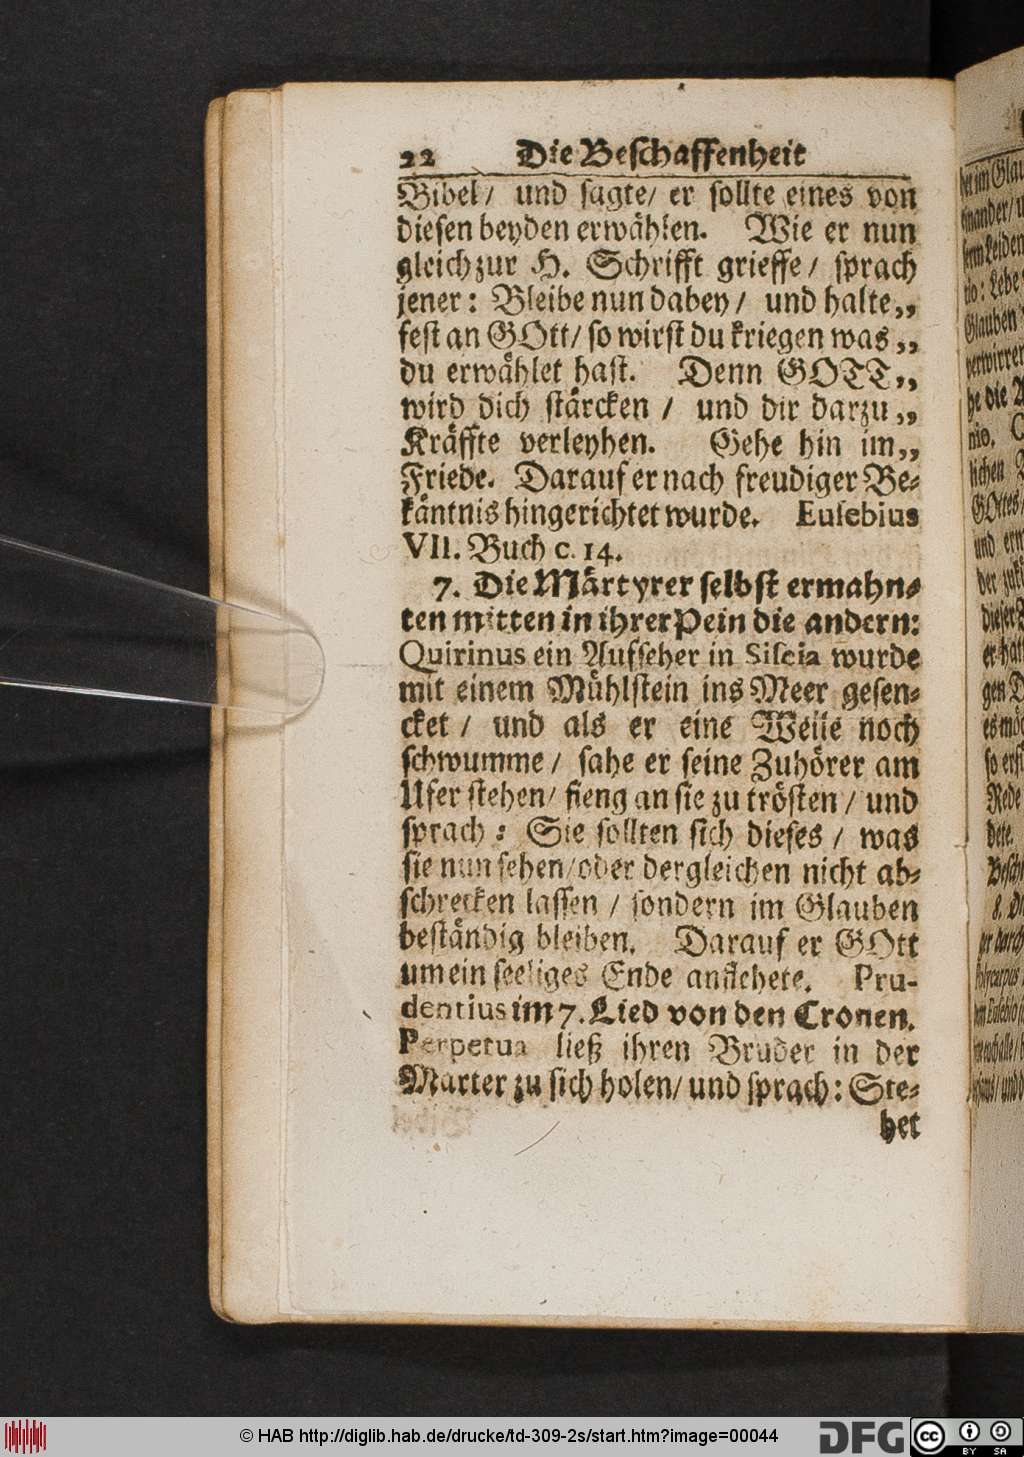 22 Die Beschaffenheit
Bibel/ und sagte/ er sollte eines von
diesen beyden erwählen. Wie er nun
gleich zur H. Schrifft grieffe/ sprach
jener: Bleibe nun dabey/ und halte„
fest an GOtt/ so wirst du kriegen was„
du erwählet hast. Denn GOTT„
wird dich stärcken / und dir darzu„
Kräffte verleyhen. Gehe hin im„
Friede. Darauf er nach freudiger Be-
käntnis hingerichtet wurde. Eusebius
VII. Buch c. 14.
7. Die Märtyrer selbst ermahn-
ten mitten in ihrer Pein die andern:
Quirinus ein Aufseher in Siscia wurde
mit einem Mühlstein ins Meer gesen-
cket / und als er eine Weile noch
schwumme / sahe er seine Zuhörer am
Ufer stehen/ fieng an sie zu trösten / und
sprach: Sie sollten sich dieses / was
sie nun sehen/oder dergleichen nicht ab-
schrecken lassen / sondern im Glauben
beständig bleiben. Darauf er GOtt
um ein seeliges Ende anflehete. Pru-
dentius im 7. Lied von den Cronen.
Perpetua ließ ihren Bruder in der
Marter zu sich holen/ und sprach: Ste-
het
© HAB http://diglib.hab.de/drucke/td-309-2s/start.htm?image=00044
DFG
cc
BY SA